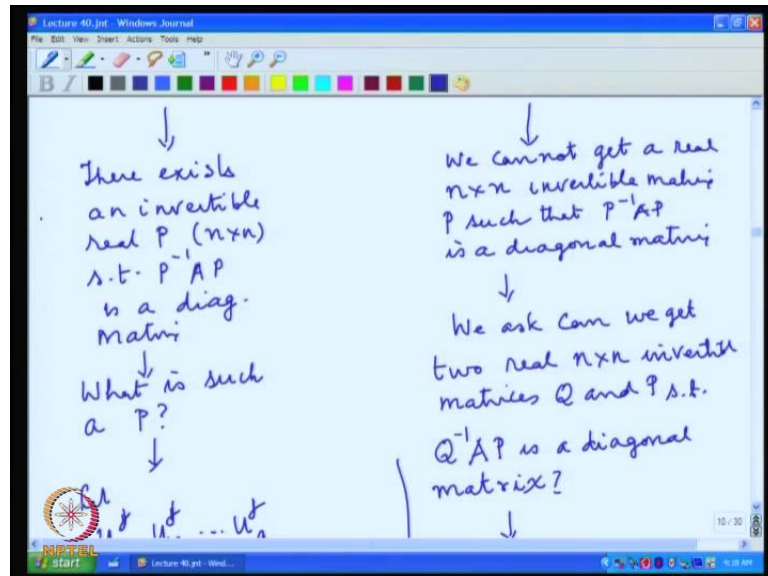 Lecture 40.jnt - Windows Journal
File Edit View Insert Actions Tools Help
B I
There exists
an invertible
real P (n×n)
s.t. P⁻¹AP
is a diag.
Matrix
What is such
a P?
We cannot get a real
n×n invertible matrix
P such that P⁻¹AP
is a diagonal matrix
We ask Can we get
two real n×n invertible
matrices Q and P s.t.
Q⁻¹AP is a diagonal
matrix?
NPTEL
10 / 30
start
Lecture 40.jnt - Wind...
4:18 AM